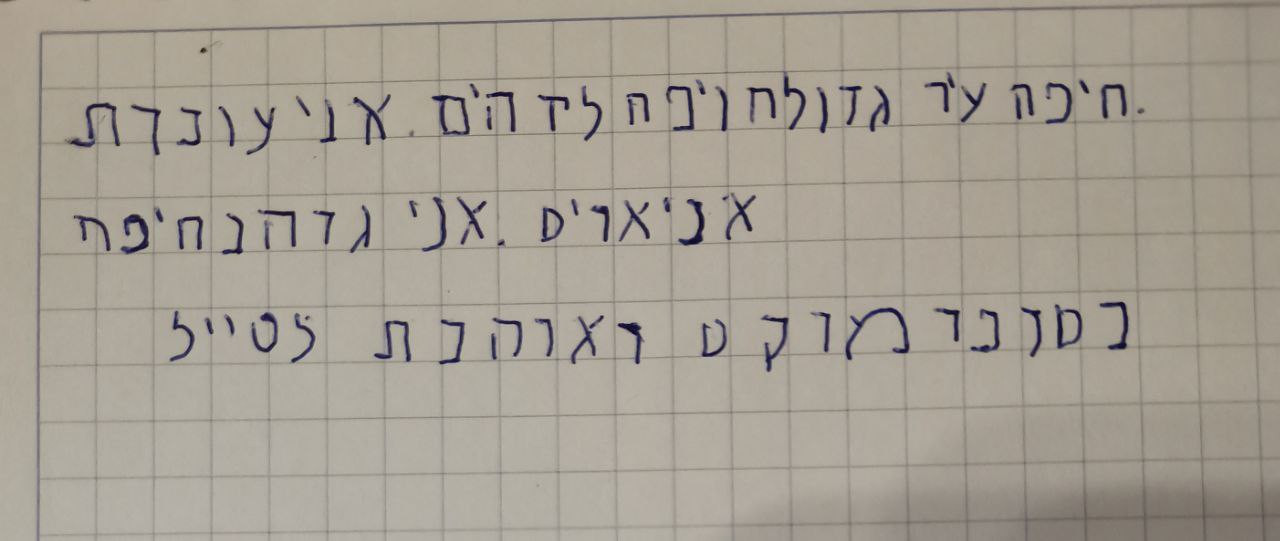 .חיפה עיר גדולה ויפה ליד הים. אני עובדת
אני ארים. אני גרה בחיפה
בסופר מרקט ואוהבת לטייל